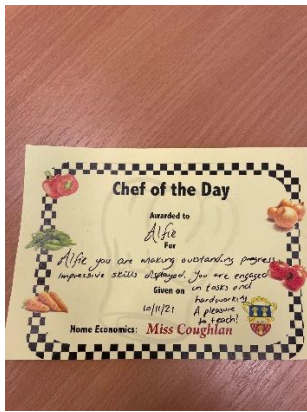 Chef of the Day
Awarded to
Alfie
For
Alfie you are making outstanding progress
impressive skills displayed. You are engaged
Given on in tasks and
hardworking
10/11/21 A pleasure
to teach!
Home Economics: Miss Coughlan